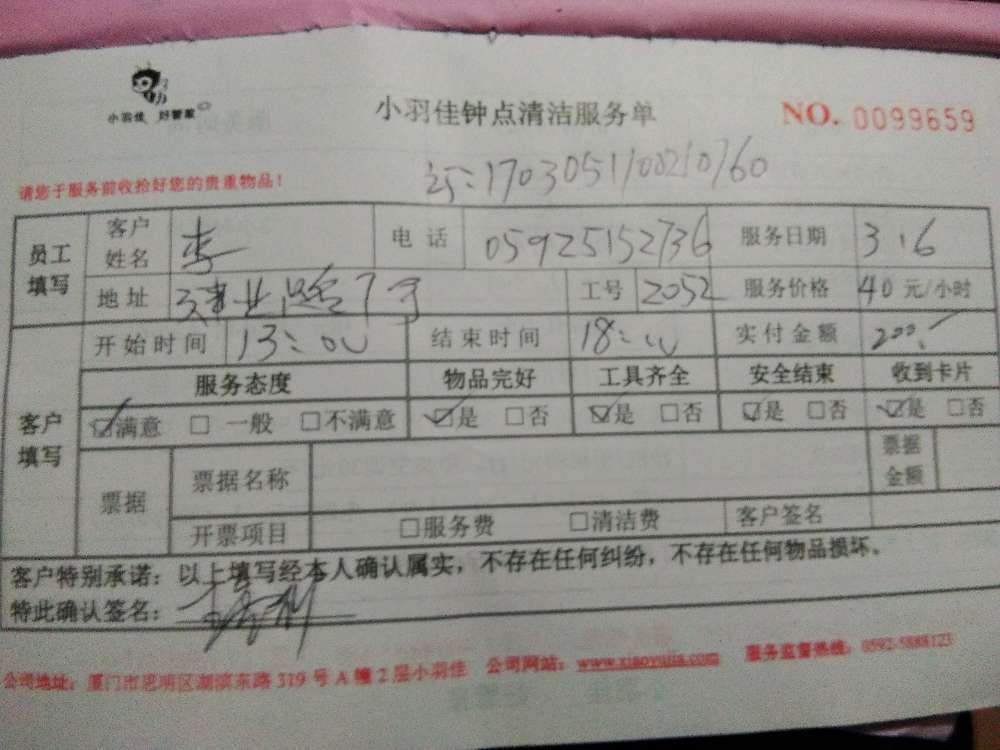 小羽佳 好管家
小羽佳钟点清洁服务单
NO. 0099659
请您于服务前收拾好您的贵重物品！
1703051100210760
员工填写 客户姓名 李 电话 05925152736 服务日期 3.6
地址 业路 号 工号 2052 服务价格 40元/小时
客户填写 开始时间 13:00 结束时间 18:00 实付金额 200
服务态度 物品完好 工具齐全 安全结束 收到卡片
☑满意 □一般 □不满意 ☑是 □否 ☑是 □否 ☑是 □否 ☑是 □否
票据 票据名称 票据金额
开票项目 □服务费 □清洁费 客户签名
客户特别承诺：以上填写经本人确认属实，不存在任何纠纷，不存在任何物品损坏。
特此确认签名：
公司地址：厦门市思明区湖滨东路319号A幢2层小羽佳 公司网站：www.xiaoyujia.com 服务监督热线：0592-5888123